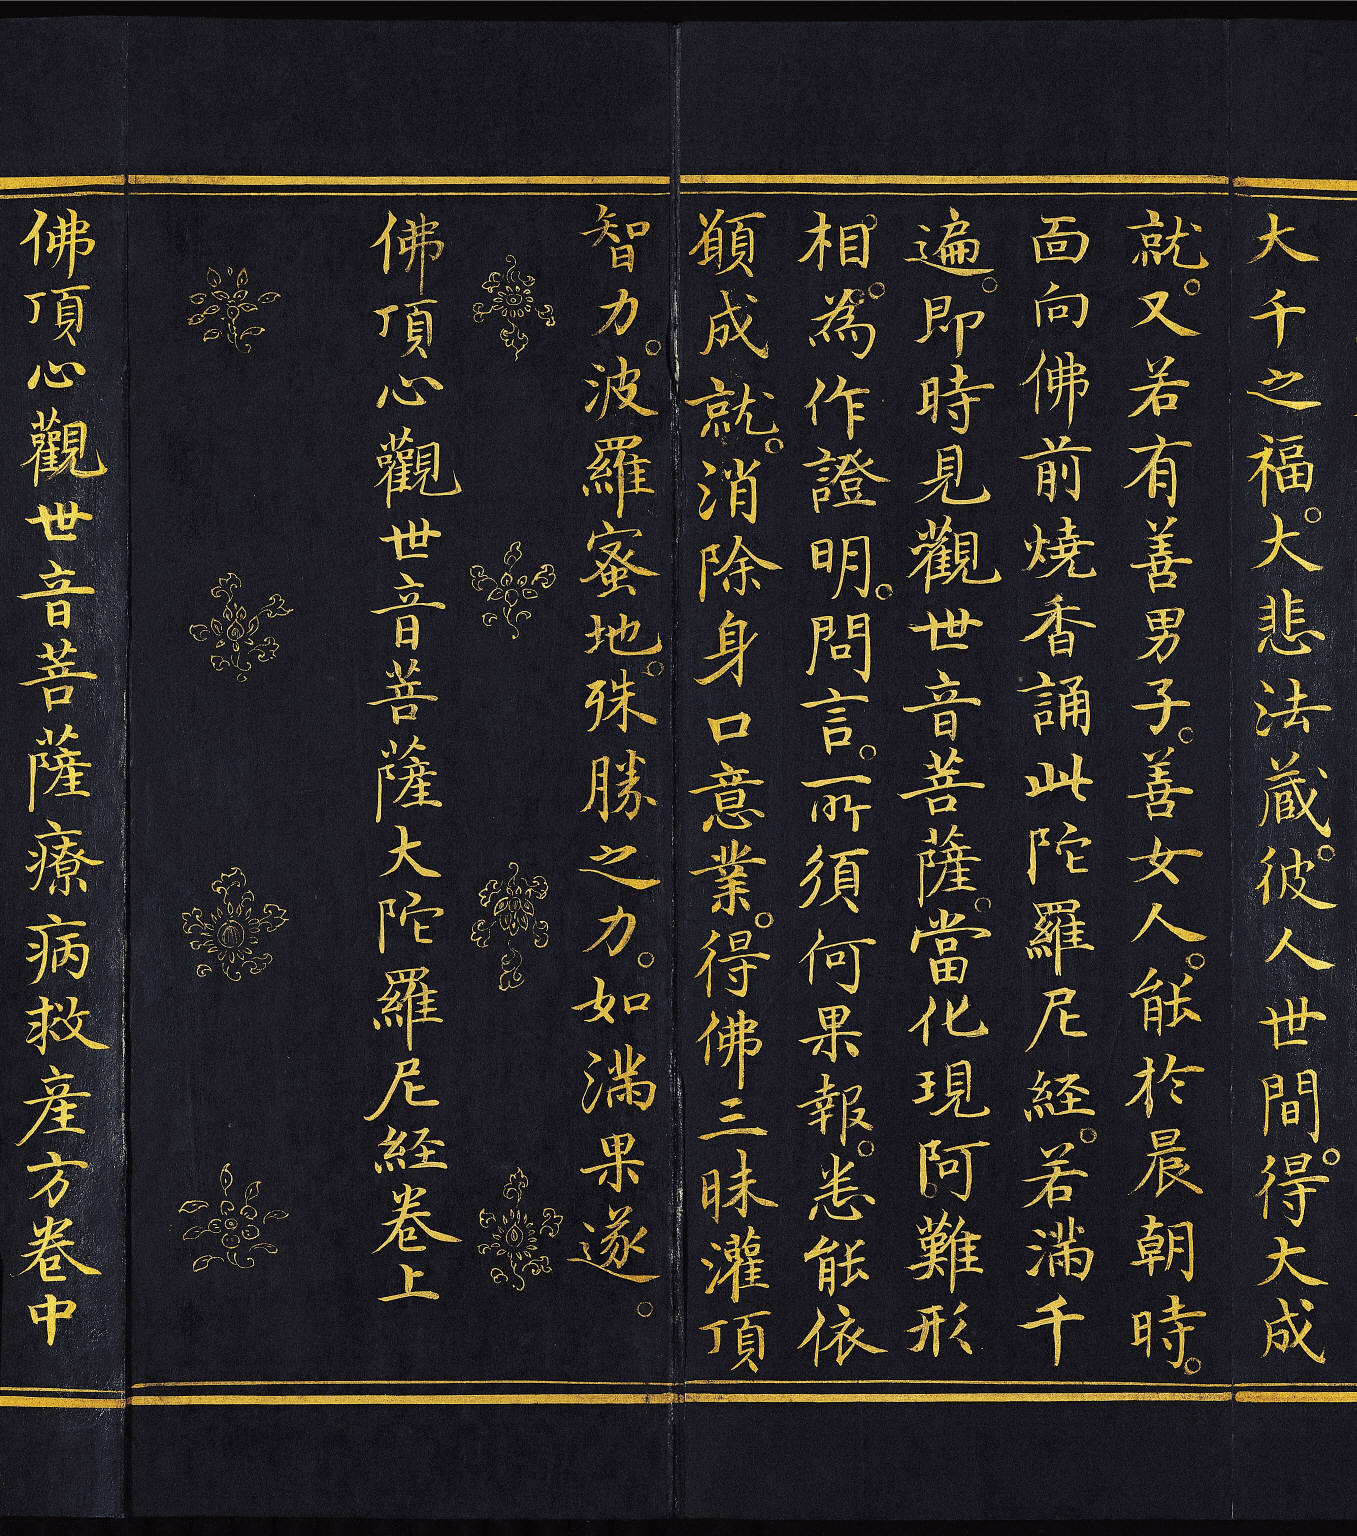 大千之福。大悲法蔵。彼人世間。得大成
就。又若有善男子。善女人。能於晨朝時。
面向佛前燒香誦此陀羅尼経。若滿千
遍。即時見觀世音菩薩。當化現阿難形
相。為作證明。問言。所須何果報。悉能依
願成就。消除身口意業。得佛三昧灌頂
智力。波羅蜜地。殊勝之力。如滿果遂。
佛頂心觀世音菩薩大陀羅尼経卷上
佛頂心觀世音菩薩療病救産方卷中